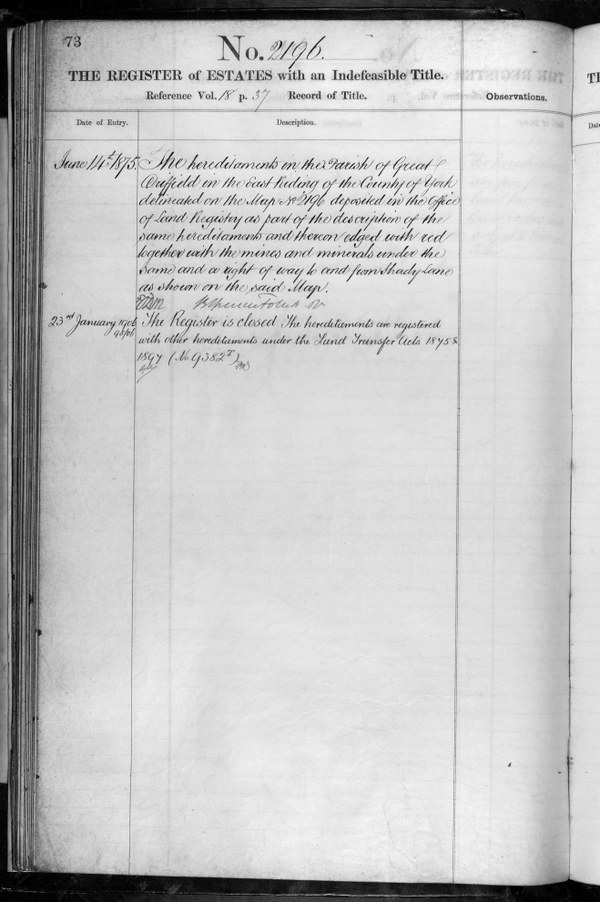 73
No. 2196.
THE REGISTER of ESTATES with an Indefeasible Title.
Reference Vol. 18 p. 37 Record of Title.
Observations.
Date of Entry.
Description.
June 14th 1875. The hereditaments in the Parish of Great
Driffield in the East Riding of the County of York
delineated on the Map No 2196 deposited in the Office
of Land Registry as part of the description of the
same hereditaments and thereon edged with red
together with the mines and minerals under the
same and a right of way to and from Shady Lane
as shown on the said Map.
23rd January 1906 The Register is closed The hereditaments are registered
with other hereditaments under the Land Transfer Acts 1875 &
1897 (No 9382